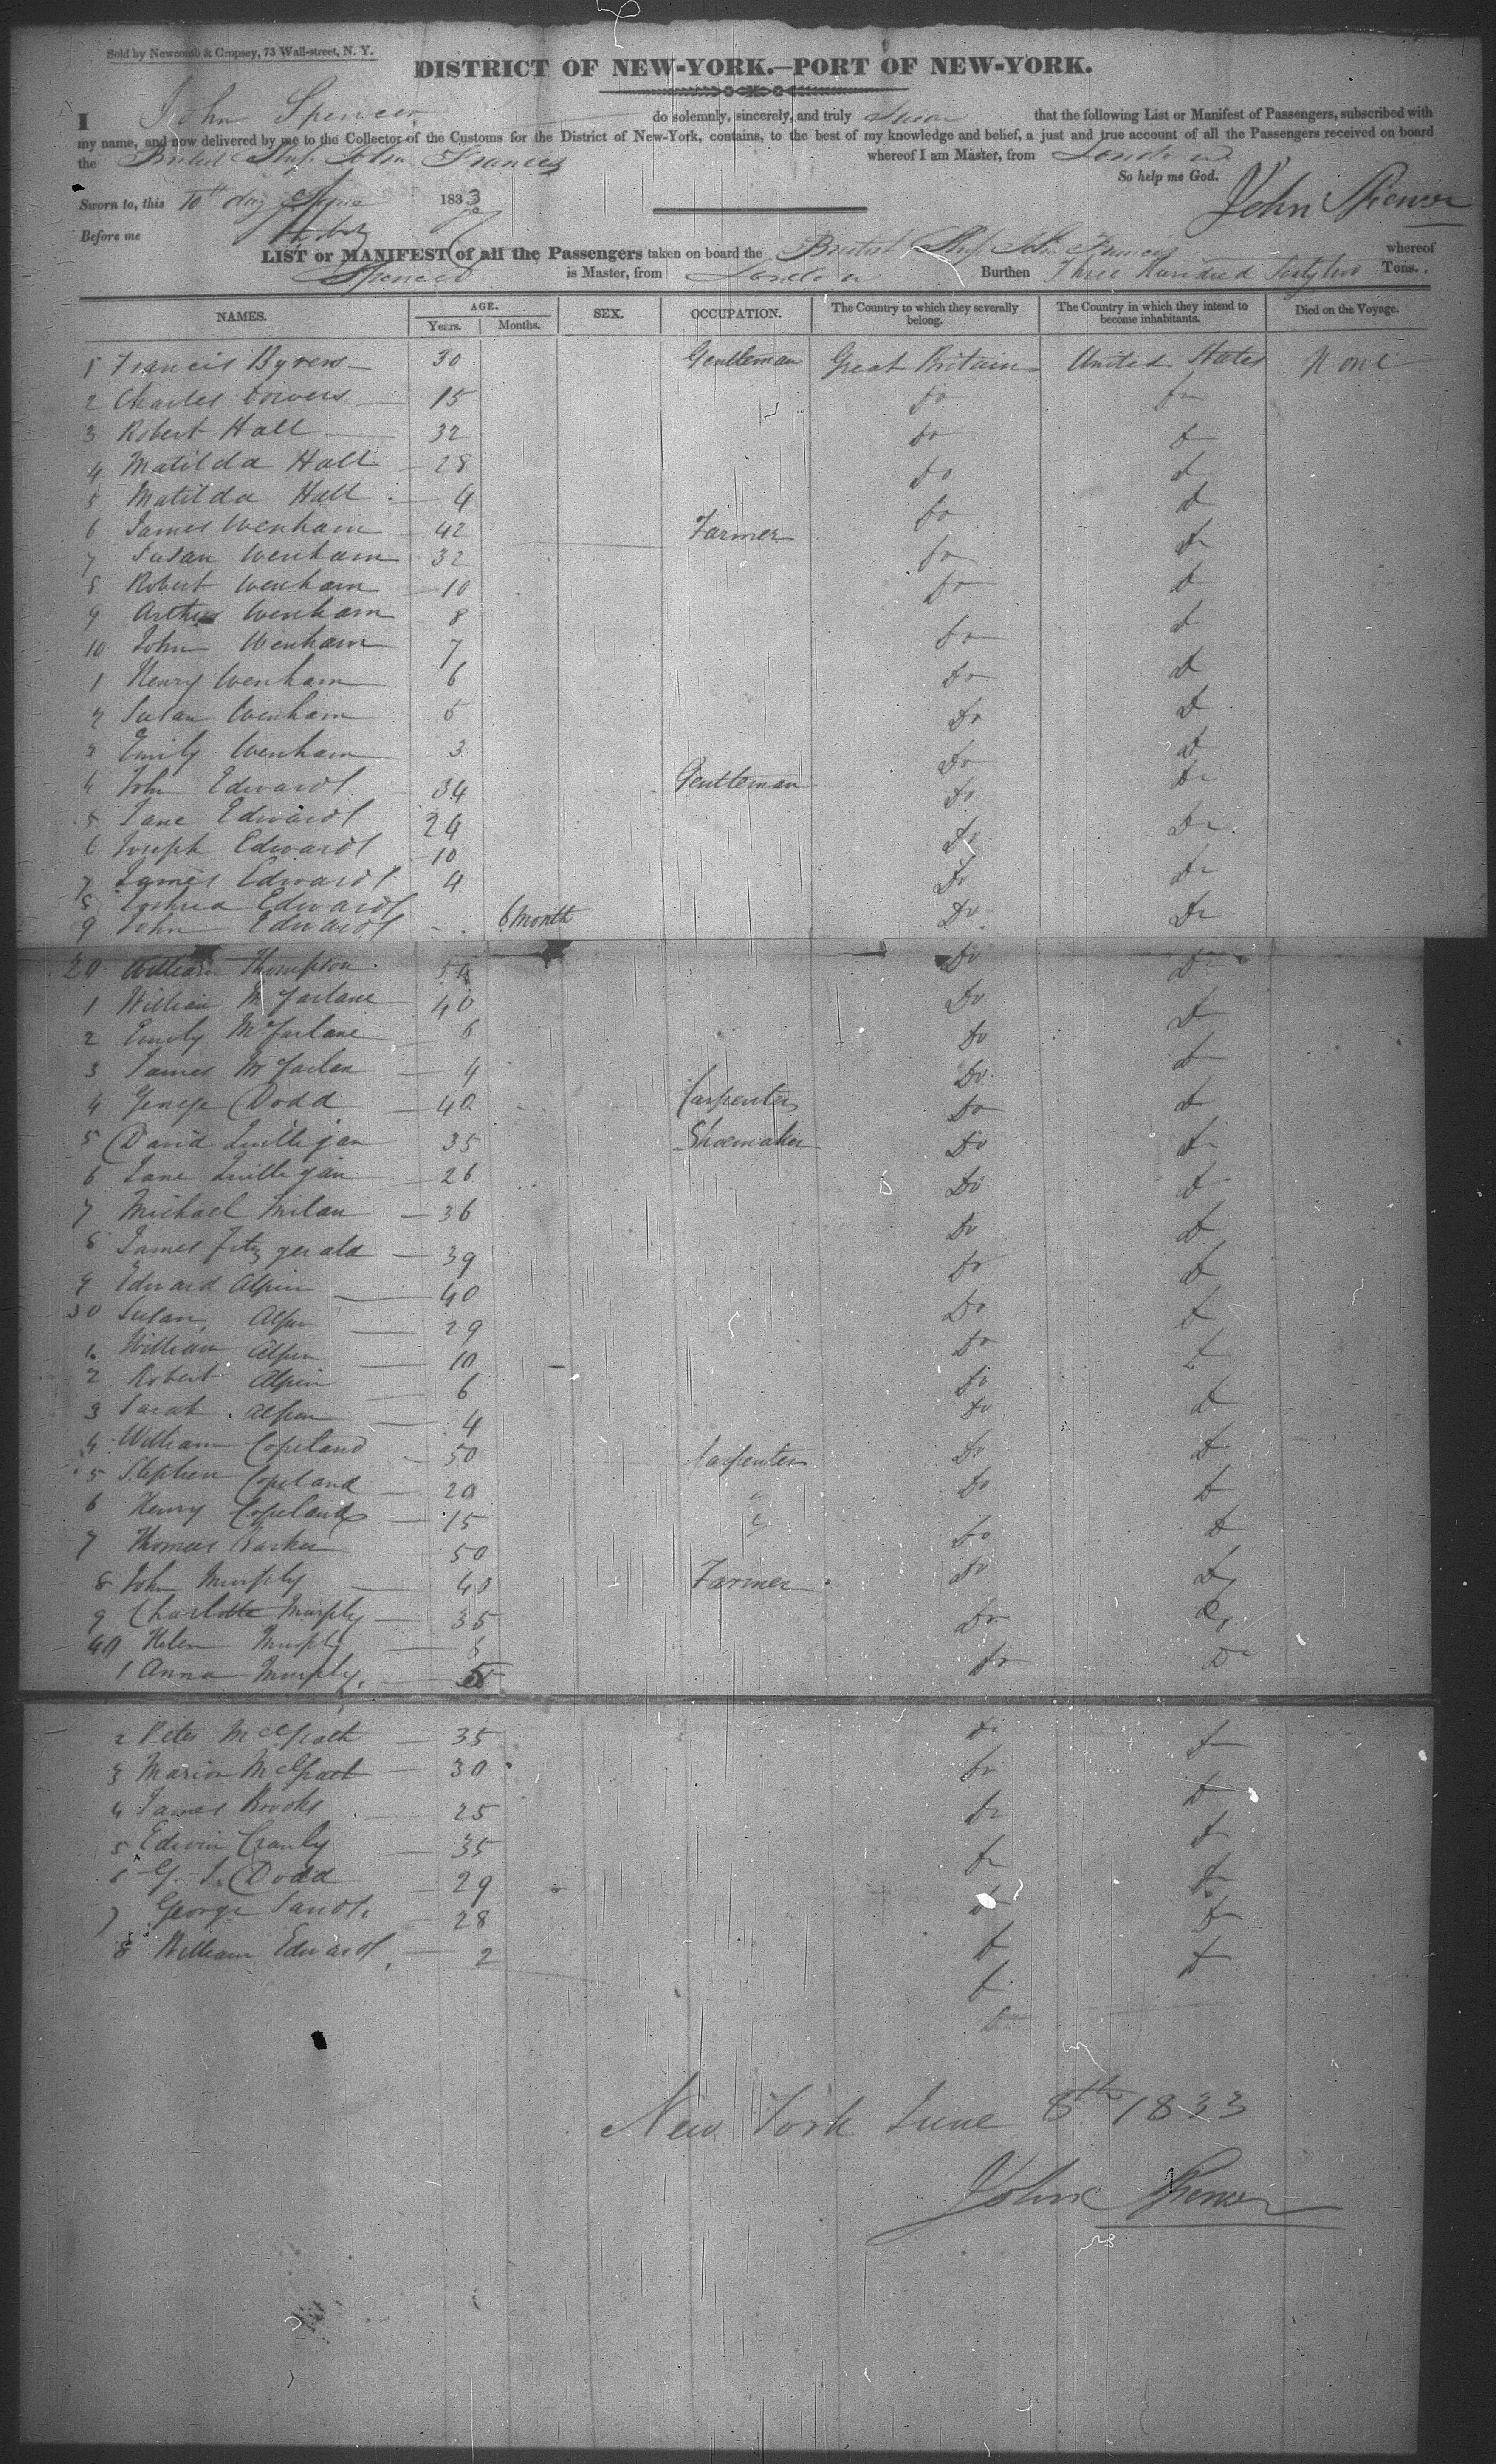 Sold by Newcomb & Cropsey, 73 Wall-street, N. Y.
DISTRICT OF NEW-YORK.—PORT OF NEW-YORK.
I John Spencer do solemnly, sincerely, and truly Swear that the following List or Manifest of Passengers, subscribed with
my name, and now delivered by me to the Collector of the Customs for the District of New-York, contains, to the best of my knowledge and belief, a just and true account of all the Passengers received on board
the British Ship John Francis whereof I am Master, from London
So help me God.
Sworn to, this 10th day June 1833 John Spencer
Before me
LIST or MANIFEST of all the Passengers taken on board the British Ship John Francis whereof
Spencer is Master, from London Burthen Three Hundred Sixty two Tons.
NAMES. AGE. Years. Months. SEX. OCCUPATION. The Country to which they severally belong. The Country in which they intend to become inhabitants. Died on the Voyage.
1 Francis Byrers 30 Gentleman Great Britain United States None
2 Charles Cowers 15 Do Do
3 Robert Hall 32 Do Do
4 Matilda Hall 28 Do Do
5 Matilda Hall 4 Do Do
6 James Wenham 42 Farmer Do Do
7 Susan Wenham 32 Do Do
8 Robert Wenham 10 Do Do
9 Arthur Wenham 8 Do
10 John Wenham 7 Do Do
1 Henry Wenham 6 Do Do
2 Susan Wenham 5 Do Do
3 Emily Wenham 3 Do Do
4 John Edwards 34 Gentleman Do Do
5 Jane Edwards 24 Do Do
6 Joseph Edwards 10
7 James Edwards 4 Do Do
8 Joshua Edwards
9 John Edwards 6 month Do Do
20 William Thompson Do Do
1 William McFarlane 40 Do Do
2 Emily McFarlane 6 Do
3 James McFarlan 4 Do Do
4 George Dodd 40 Carpenter Do Do
5 David Quilligan 35 Shoemaker Do Do
6 Jane Quilligan 26 Do Do
7 Michael Milan 36 Do Do
8 James Fitzgerald 39 Do Do
9 Edward Alpin 40
30 Susan Alpin 29 Do Do
1 William Alpin 10 Do Do
2 Robert Alpin 6 Do
3 Sarah Alpin 4 Do Do
4 William Copeland 50 Carpenter Do Do
5 Stephen Copeland 20 " Do Do
6 Henry Copeland 15 " Do
7 Thomas Barker 50 Do
8 John Murphy 40 Farmer Do Do
9 Charlotte Murphy 35 Do Do
40 Helen Murphy
1 Anna Murphy 5 Do Do
2 Peter McGrath 35 Do Do
3 Marion McGrath 30 Do Do
4 James Brooks 25 Do
5 Edwin Cranly 35 Do Do
6 G. J. Dodd 29 Do
7 George Sands 28 Do Do
8 William Edwards 2 Do Do
Do
Do
New York June 8th 1833
John Spencer